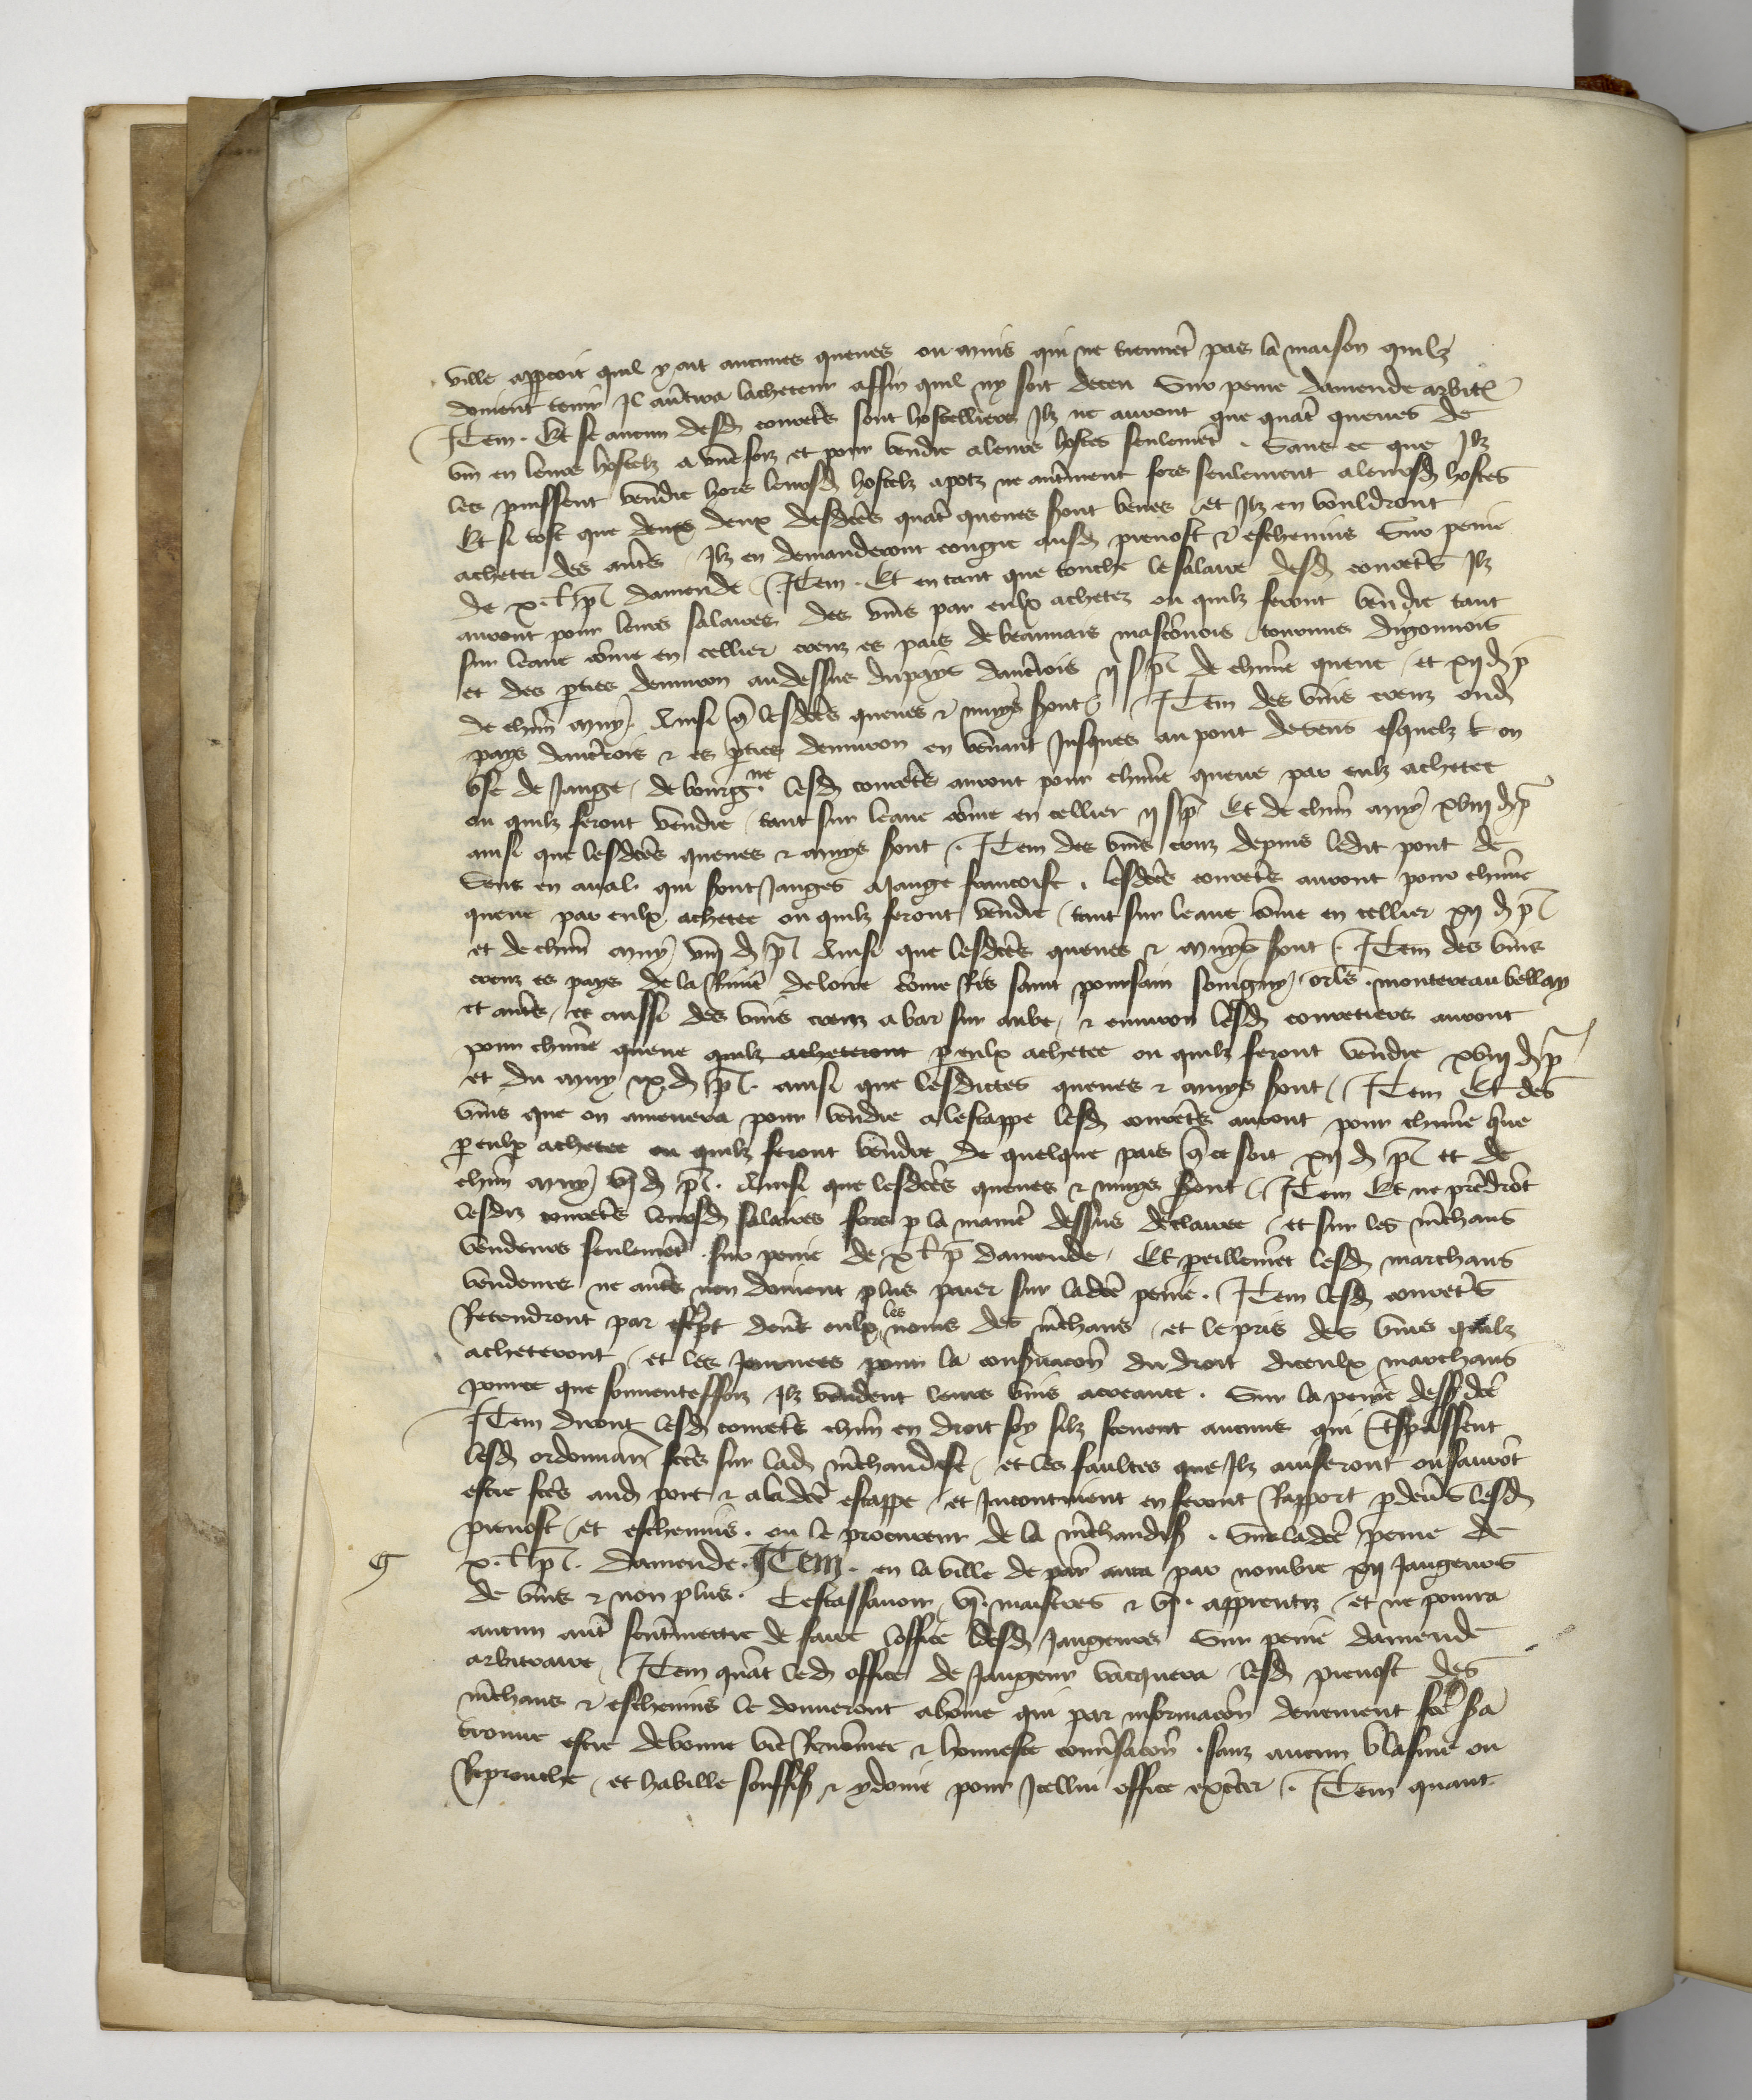 ville apperçoit quil y ait aucunes queues ou muis qui ne tiennēt pas la maison quilz
doiuent tenir Il aūtira lacheteur affin quil ny soit deceu Sur peine damende arbitᵉ
Item . Et se aucun desd courrets sont hosteliers Ilz ne auront que quatʳ queues de
vin en leurs hostelz a vne foiz et pour vendre a leurs hostes seulemēt . Sans ce que Ilz
les puissent vendre hors leursd hostelz a potz ne autrement fors seulement a leursd hostes
Et si tost que deux desdctēs quatʳ queues sont beues et Ilz en vouldront
acheter des autˢ Ilz en demanderont congie ausd preuost & escheuins Sur peine
de x . l p damende / Item . Et en tant que touche le salaire desd courretˢ Ilz
auront pour leurs salaires des vins par eulx achetez ou quilz feront vendre tant
sur leaue cōme en cellier creuz es pais de beaunais masconois tournus digonnois
et des pties denuiron au dessus du pays daucerrois ij s p de chūne queue / et xij d p
de chūn muy . Ainsi q lesdctēs queues & muys sont / Item des vins creuz oud
pays daucerrois & es pties denuiron en venant Jusques au pont de sens esquelz l on
vse de Jauge / de bourg.ne lesd courretˢ auront pour chūne queue par eulx achetee
ou quilz feront vendre / tant sur leaue cōme en cellier ij s p Et de chūn muy xviij d p
ainsi que lesdctēs queues & muys sont . Item des vins creuz depuis ledit pont de
Sens en aual . qui sont Jauges a Jauge francoise . lesdctēs courretˢ auront pour chūne
queue par eulx achetee ou quilz feront vendre / tant sur leaue cōme en cellier xij d p
et de chūn muy viij d p Ainsi que lesdctēs queues & muys sont . Item des vins
creuz es pays de la Riuieʳ de loire cōme Ris saint poursain souuigny / orlˢ . montereau bellay
et autˢ / et aussi des vins creuz a bar sur aube / & enuiron lesd courretiers auront
pour chūne queue quilz acheteront p eulx achetee ou quilz feront vendre xviij d p
et du muy ix d p . ainsi que lesdictes queues & muys sont / Item Et des
vins que on amenera pour vendre a lestappe lesd courretˢ auront pour chūne queue
p eulx achetee ou quilz feront vendre de quelque pais q ce soit xij d p et de
chūn muy vj d p . Ainsi que lesdctēs queues & muys sont / Item Et ne prēdrōt
lesdiz courretˢ leursd salaires fors p la manieʳ dessus declairee / et sur les mˢchans
vendeurs seulemēt . sur peine de x l p damende / Et pareillemēt lesd marchans
vendeurs ne autˢ non doiuent plus paier sur ladcē peine . Item lesd courretˢ
Retendront par escpt deuˢ eulx les noms des mˢchans / et le pris des vins quilz
acheteront / et les Journees pour la conseruacōn du droit diceulx marchans
pource que souuenteffoiz Ilz vendent leurs vins a creance . Sur la peine dessˢ dcē
Item diront lesd courretˢ chūn en droit soy silz sceuent aucuns qui trespassent
lesd ordonnanˢ fcēs sur lad mˢchandise / et les faultes que Ilz auiseront ou sauront
estre fcēs aud port & a ladcē estappe / et Incontinent en feront Rapport p deuˢ lesd
preuost / et escheuins . ou le procureur de la mˢchandise . Sur ladcē peine de
x . l p . damende . Item . en la ville de parˢ aura par nombre xij Jaugeurs
de vins & non plus . Cest assauoir vj . maistres & vj . apprentiz / et ne pourra
aucun autʳ sentremettre de faire loffice desd Jaugeurs Sur peine damende
arbitraire / Item quāt led office de Jaugeur vacquera lesd preuost des
mˢchans & escheuins le donneront a hōme qui par informacōn deuement fcē sᵃ
trouue estre de bonne vie Renōmee & honneste conuˢsacōn . sans aucun blasme ou
Reprouche / et habille souffisˢ & ydoine pour Icellui office exˢcer . Item quant